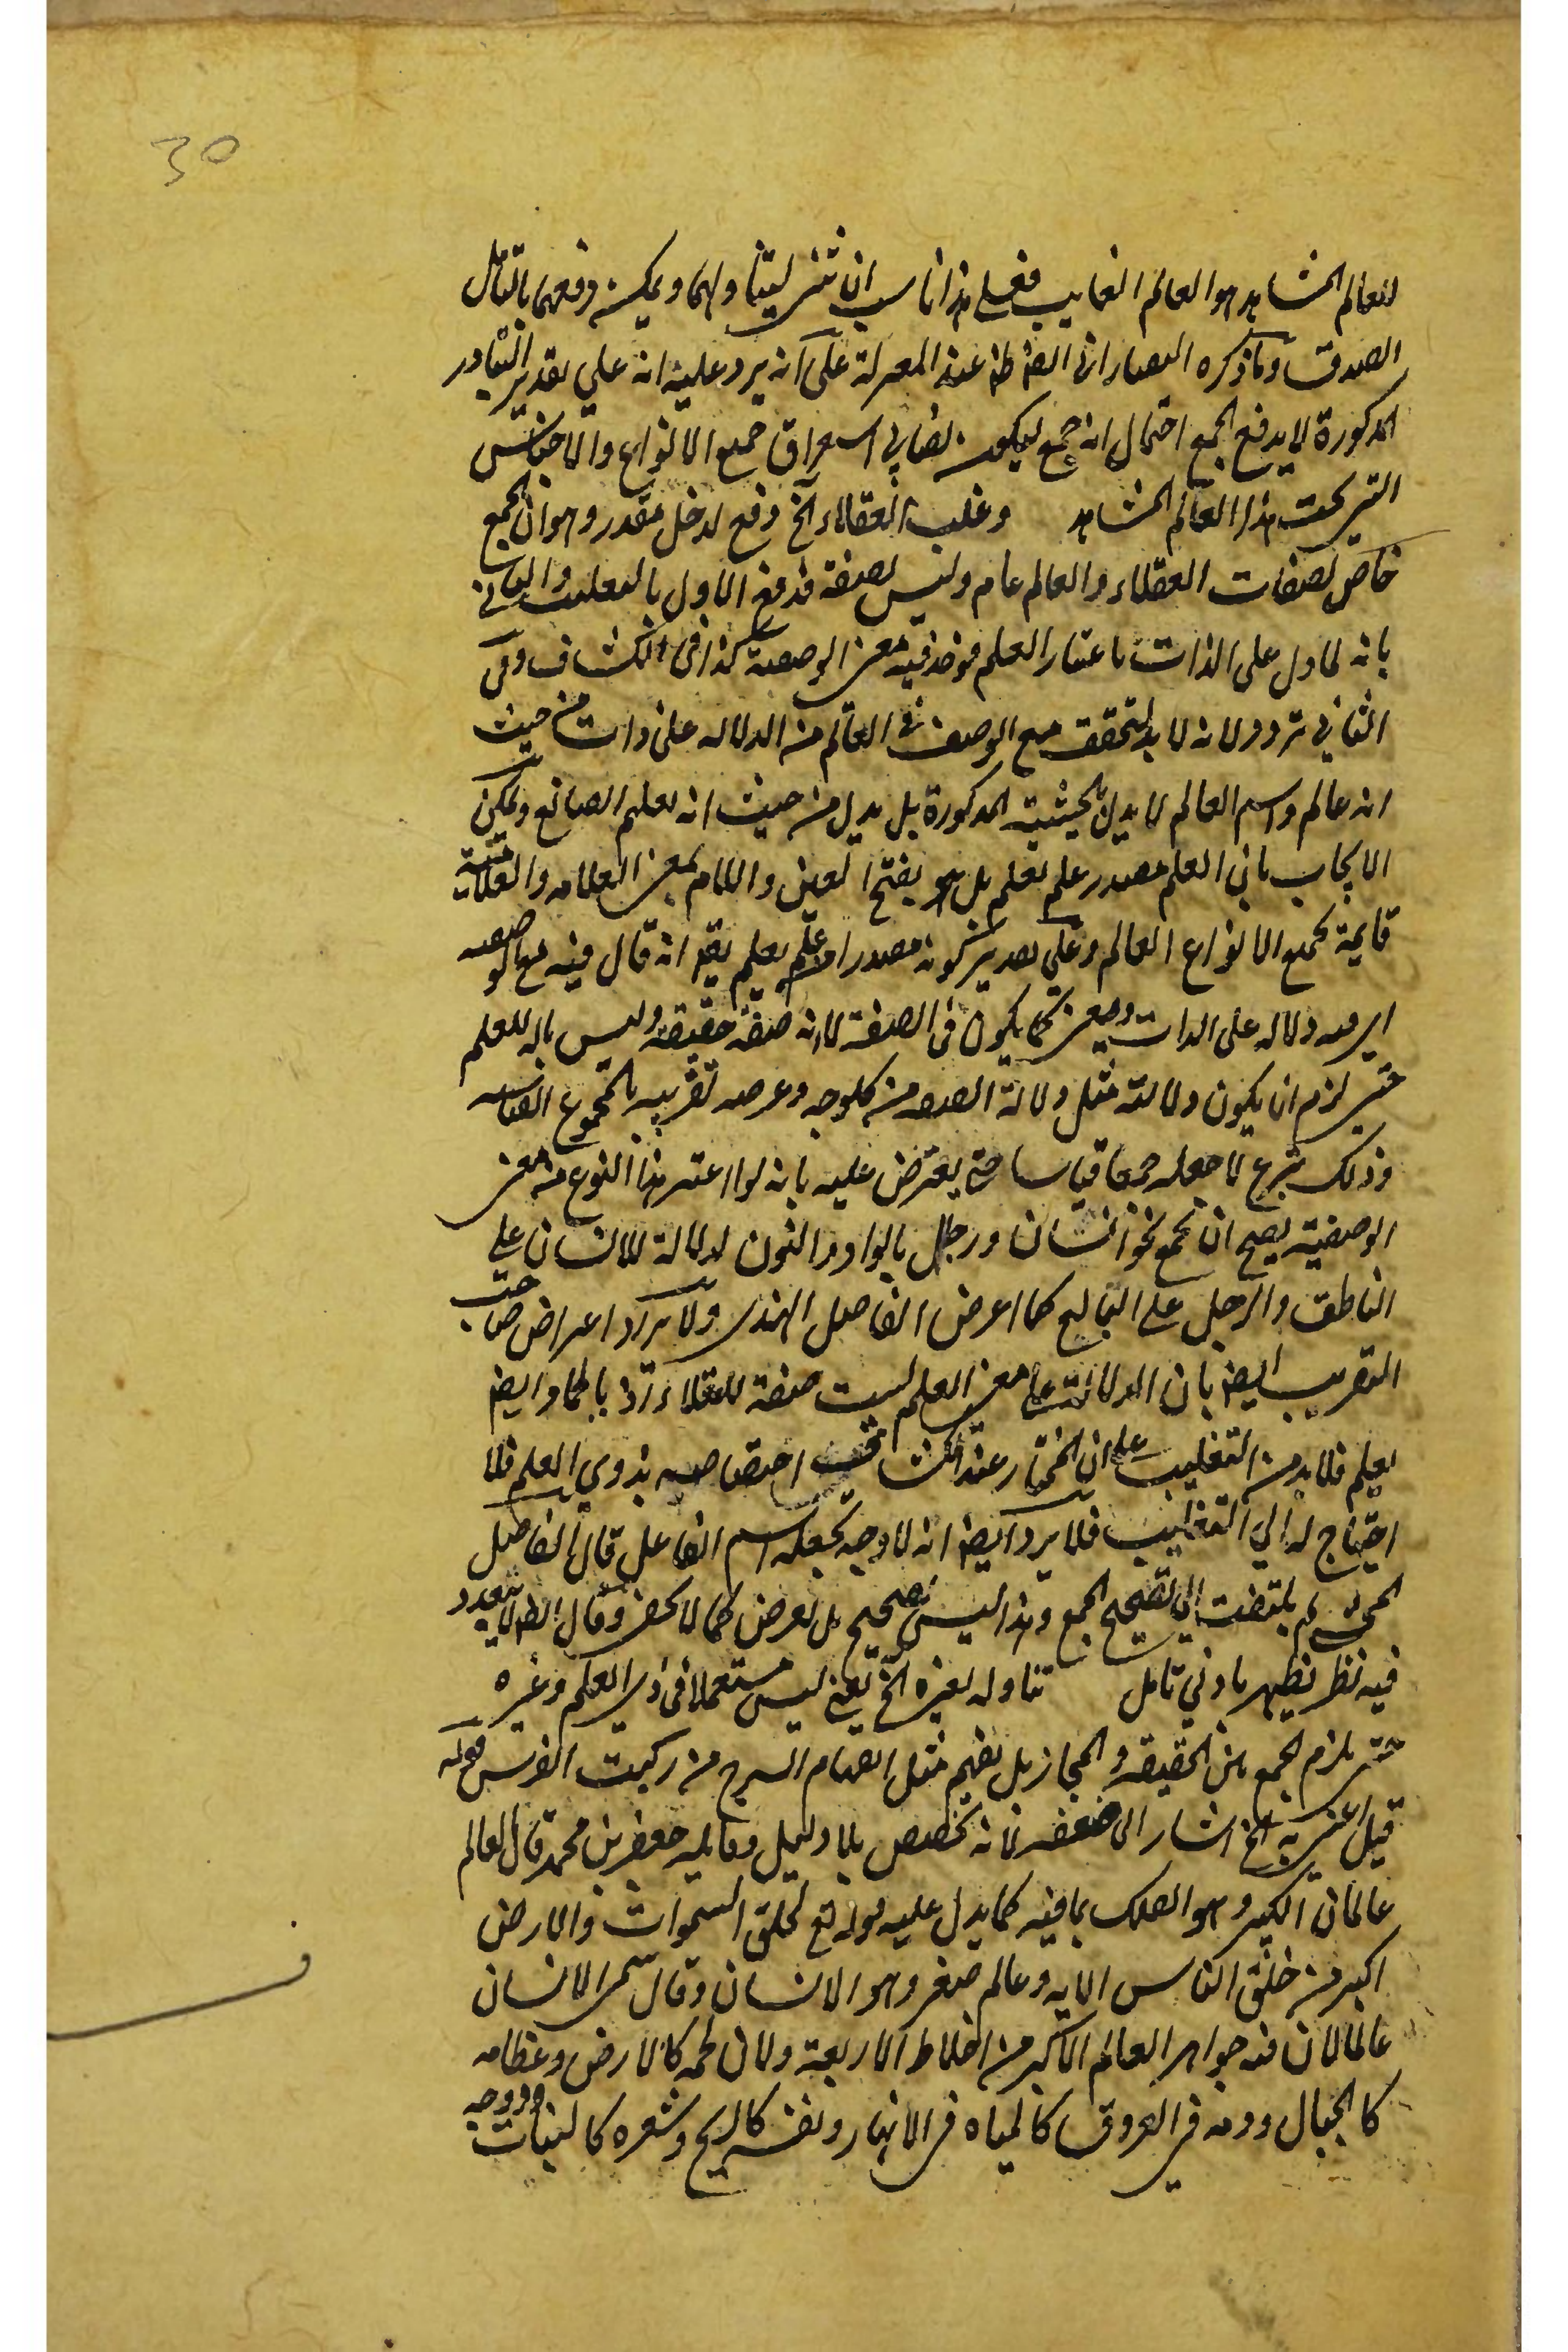 30
للعالم المشاهد هو العالم الغايب فعلى هذا ناسب ان تثنى ليتناولهما ويمكن دفعهما بالتأمل
الصدوق وما ذكره البصار انى ايضا عند على انه يرد عليه انه على تقدير التبادر
المذكورة لا يدفع الجمع احتمال انه جمع ليكون نصا في استغراق جميع الانواع والاجناس
التي تحت هذا العالم المشاهد وغلب العقلاء الخ دفع لدخل مقدر وهو ان الجمع
خاص لصفات العقلاء والعالم عام وليس بصفة فدفع الاول بالتغليب والثاني
بانه لما دل على الذات باعتبار العلم فوجد فيه معنى الوصفية كذا في الكشاف وفي
الثاني تردد لانه لا بد لتحقق مع الوصف في العالم من الدلالة على ذات من حيث
انه عالم واسم العالم لا يدل بالحيثية المذكورة بل يدل من حيث انه يعلم الصانع ويمكن
الايجاب بان العلم مصدر علم يعلم بل هو بفتح العين واللام بمعنى العلامه والعلامة
قايمة بجميع الانواع العالم وعلى تقدير كونه مصدرا من علم يعلم انه قال فيه معنى الوصفيه
اي فيه دلاله على الذات ومعنى كما يكون في الصفة لا انه صفة حقيقة وليس باله للعلم
حتى لزم ان يكون دلالته مثل دلالة الصفه من كل وجه وعرضه تقريبه بالجموع القياسه
وذلك لا جعله جمعا قياسا حتى يعترض عليه بانه لو اعتبر هذا النوع من معنى
الوصفية يصح ان يجمع نحو انسان ورجل بالواو والنون لدلالة الانسان على
الناطق والرجل على البالغ كما اعرض الفاضل الهندى ولا يراد اعراض صاحب
التقريب ايضا بان الدلالة على معنى العلم ليست صفة للعقلاء اذ الجماد ايضا
يعلم فلا بد من التغليب على ان المختار عند الكشاف اختصاصه بذوي العلم فلا
احتياج له الي التغليب فلا يرد ايضا انه لا وجه لجعله اسم الفاعل قال الفاضل
لم يلتفت الي تصحيح الجمع وهذا ليس بصحيح بل تعرض كما لا يخفى وقال
فيه نظر يظهر بادني تامل تناوله لغيره الخ يعني ليس مستعملا في ذي العلم وغيره
حتى يلزم الجمع بين الحقيقه والمجاز بل يفهم مثل انفهام السرج من ركبت الفرس قوله
قيل عنى به الخ اشار الى ضعفه لانه تخصيص بلا دليل وقايله جعفر بن محمد قال العالم
عالمان الكبير وهو الفلك بما فيه كما يدل عليه قوله تع لخلق السموات والارض
اكبر من خلق الناس الايه وعالم صغير وهو الانسان وقال سمى الانسان
عالما لان فيه جواهر العالم الاكبر من اخلاط الاربعة ولان لحمه كالارض وعظامه
كالجبال ودمه في العروق كالمياه في الانهار ونفسه كالريح وشعره كالنبات وروحه